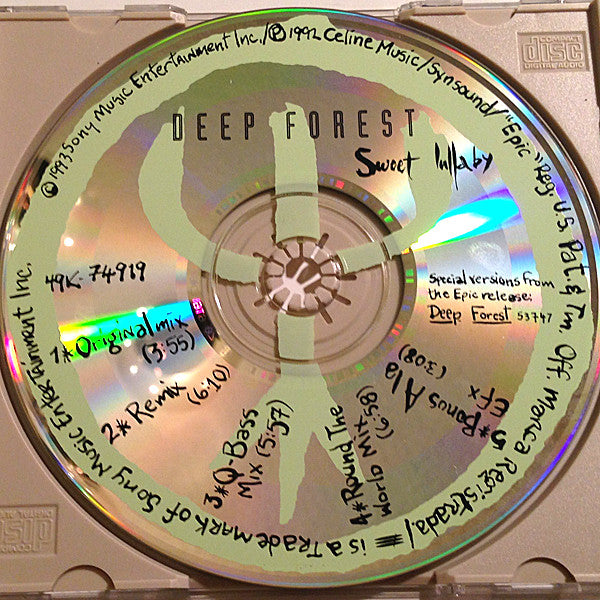 ©1993 Sony Music Entertainment Inc./℗1992 Celine Music/Synsound/"Epic" Reg. U.S. Pat. & Tm. Off. Marca Registrada/ is a Trademark of Sony Music Entertainment Inc.
DEEP FOREST
Sweet lullaby
49K-74919
Special versions from
the Epic release:
Deep Forest 53747
1* Original mix
(3:55)
2* Remix
(6:10)
3* Q-Bass
Mix (5:57)
4* Round The
World Mix
(6:58)
5* Bonus Ala
EFX
(3:08)
COMPACT
disc
DIGITAL AUDIO
COMPACT
disc
DIGITAL AUDIO